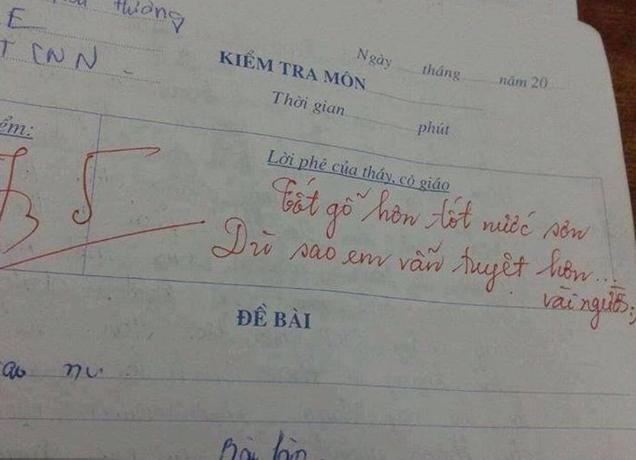 thương
E
T CNN
Ngày tháng năm 20
KIỂM TRA MÔN
Thời gian phút
Lời phê của thầy, cô giáo
Tốt gỗ hơn tốt nước sơn
Dù sao em vẫn tuyệt hơn...
vài người :)
ĐỀ BÀI
Bài làm